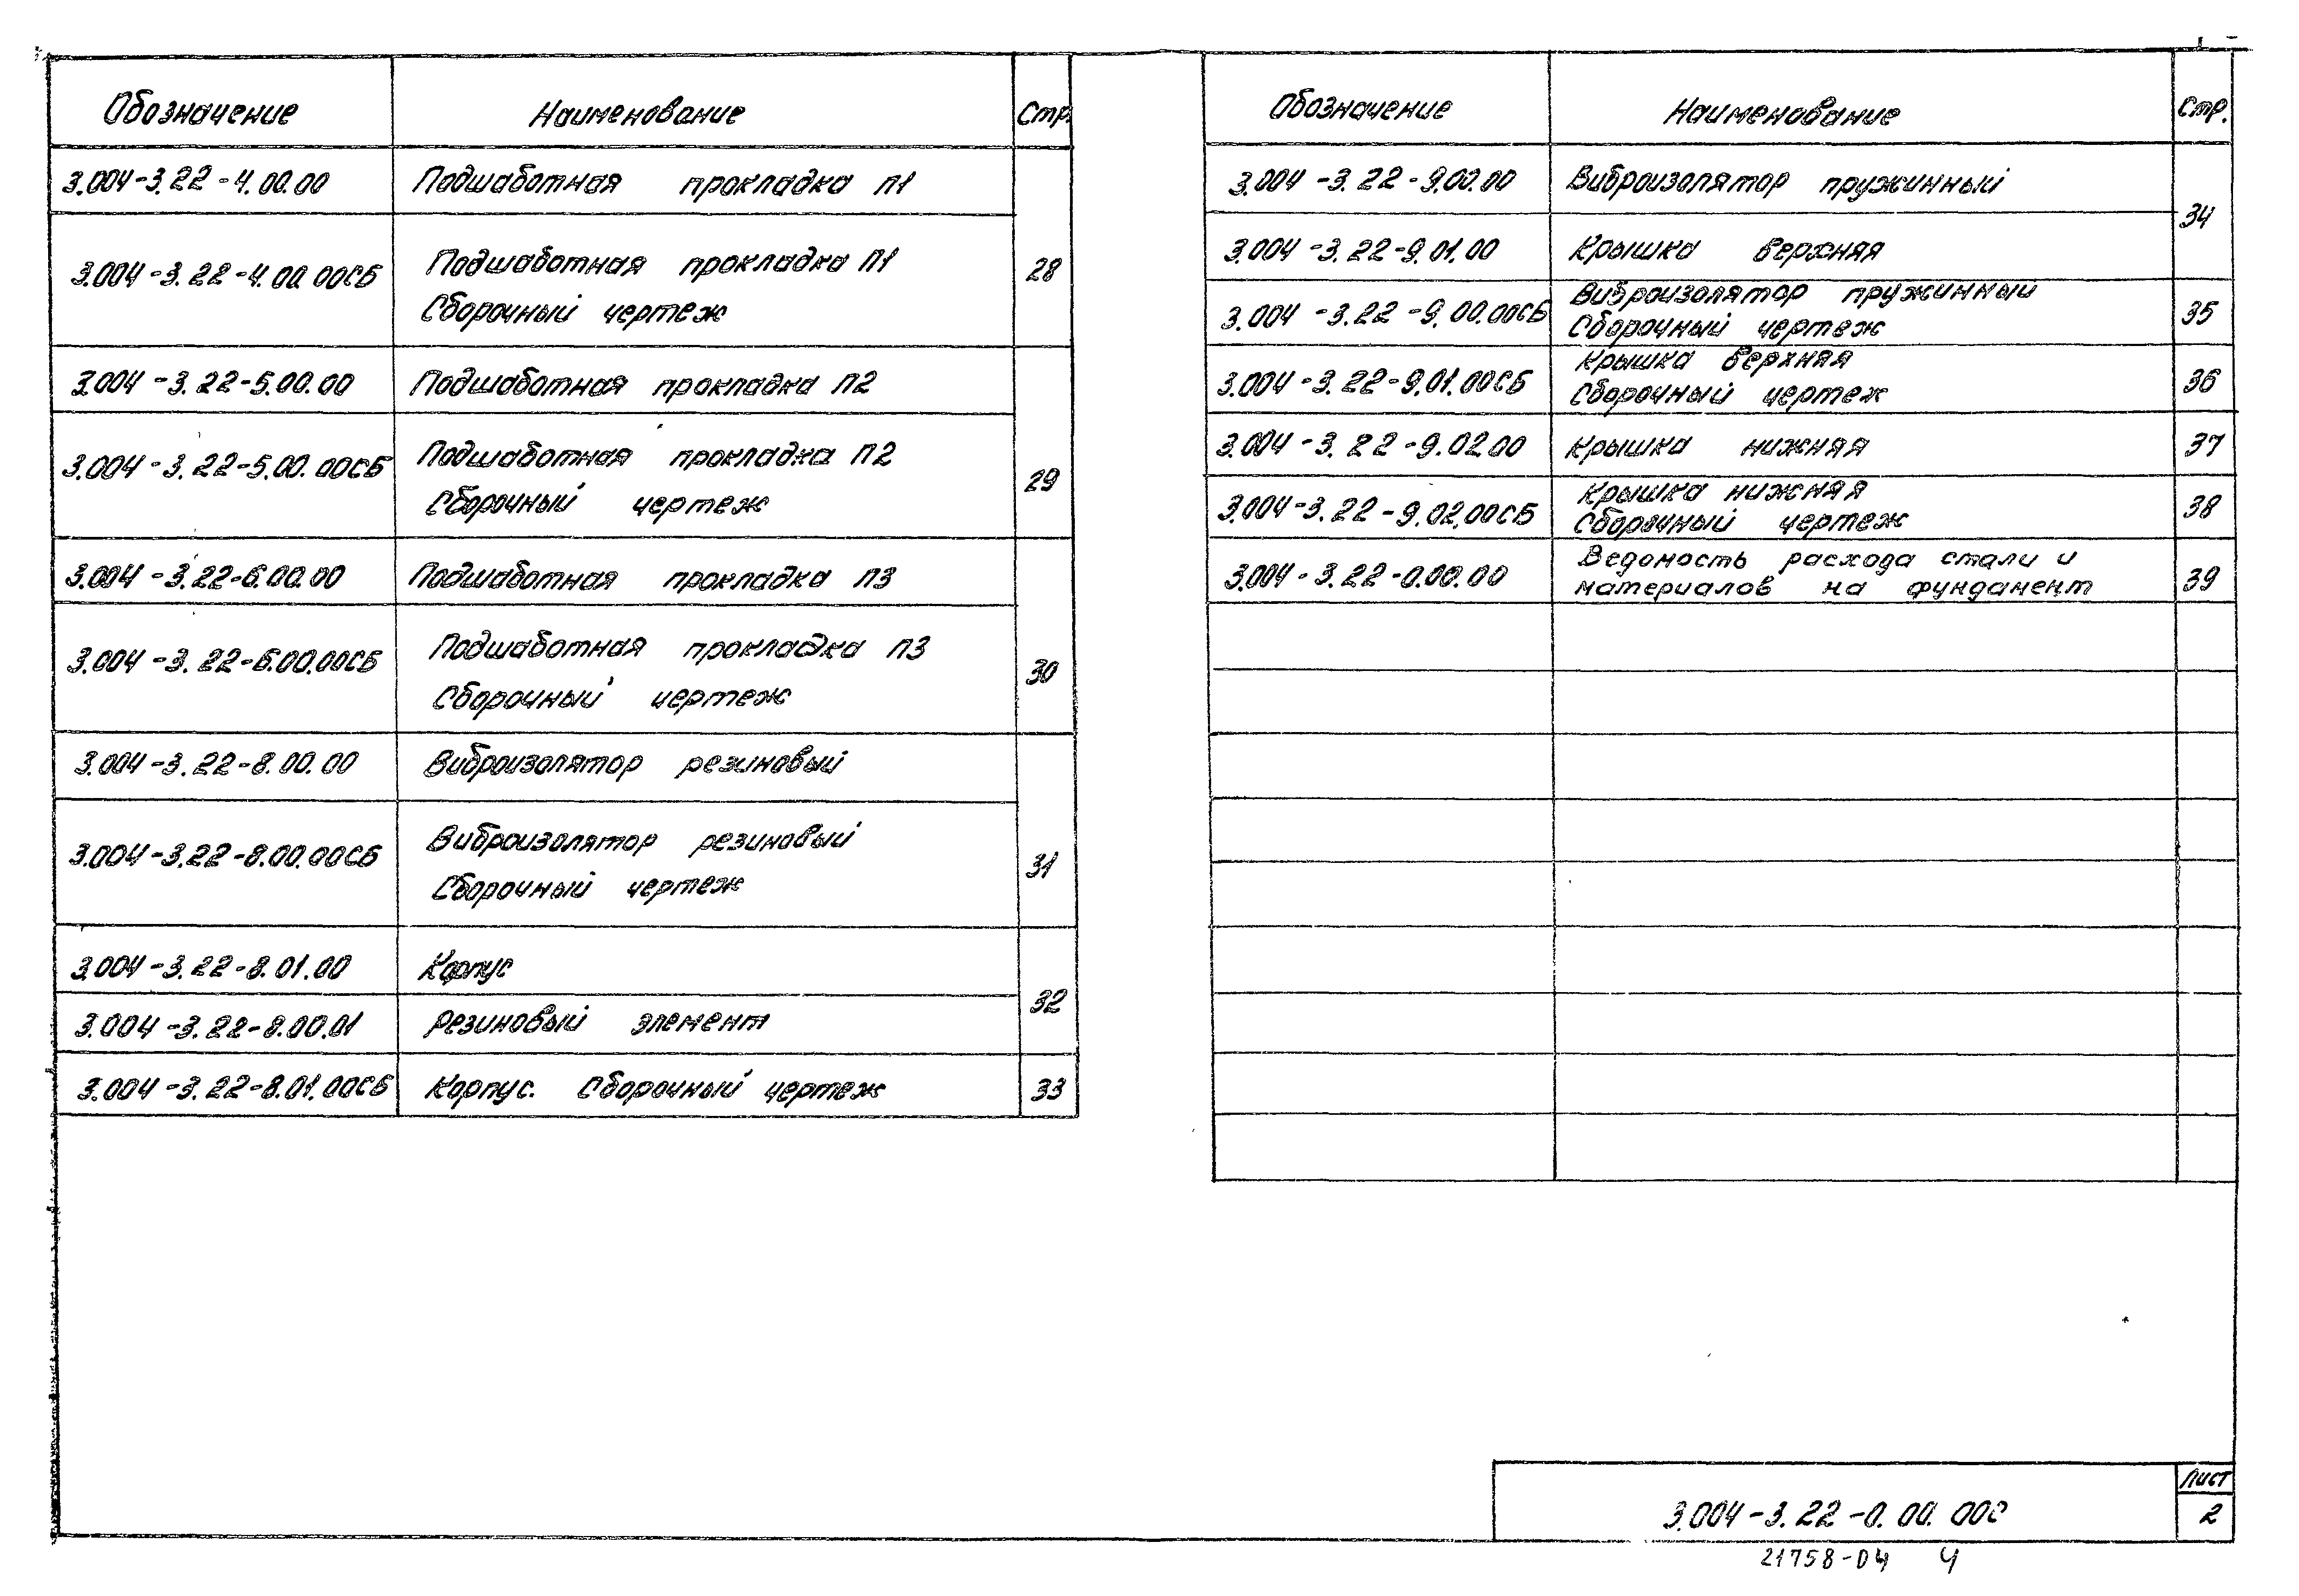 Обозначение Наименование Стр.
3.004-3.22-4.00.00 Подшаботная прокладка П1
3.004-3.22-4.00.00СБ Подшаботная прокладка П1
Сборочный чертеж
28
3.004-3.22-5.00.00 Подшаботная прокладка П2
3.004-3.22-5.00.00СБ Подшаботная прокладка П2
Сборочный чертеж
29
3.004-3.22-6.00.00 Подшаботная прокладка П3
3.004-3.22-6.00.00СБ Подшаботная прокладка П3
Сборочный чертеж
30
3.004-3.22-8.00.00 Виброизолятор резиновый
3.004-3.22-8.00.00СБ Виброизолятор резиновый
Сборочный чертеж
31
3.004-3.22-8.01.00 Корпус
3.004-3.22-8.00.01 Резиновый элемент
32
3.004-3.22-8.01.00СБ Корпус. Сборочный чертеж 33
Обозначение Наименование Стр.
3.004-3.22-9.00.00 Виброизолятор пружинный
3.004-3.22-9.01.00 Крышка верхняя
34
3.004-3.22-9.00.00СБ Виброизолятор пружинный
Сборочный чертеж
35
3.004-3.22-9.01.00СБ Крышка верхняя
Сборочный чертеж
36
3.004-3.22-9.02.00 Крышка нижняя 37
3.004-3.22-9.02.00СБ Крышка нижняя
Сборочный чертеж
38
3.004-3.22-0.00.00 Ведомость расхода стали и
материалов на фундамент
39
3.004-3.22-0.00.00С
Лист
2
21758-04 4